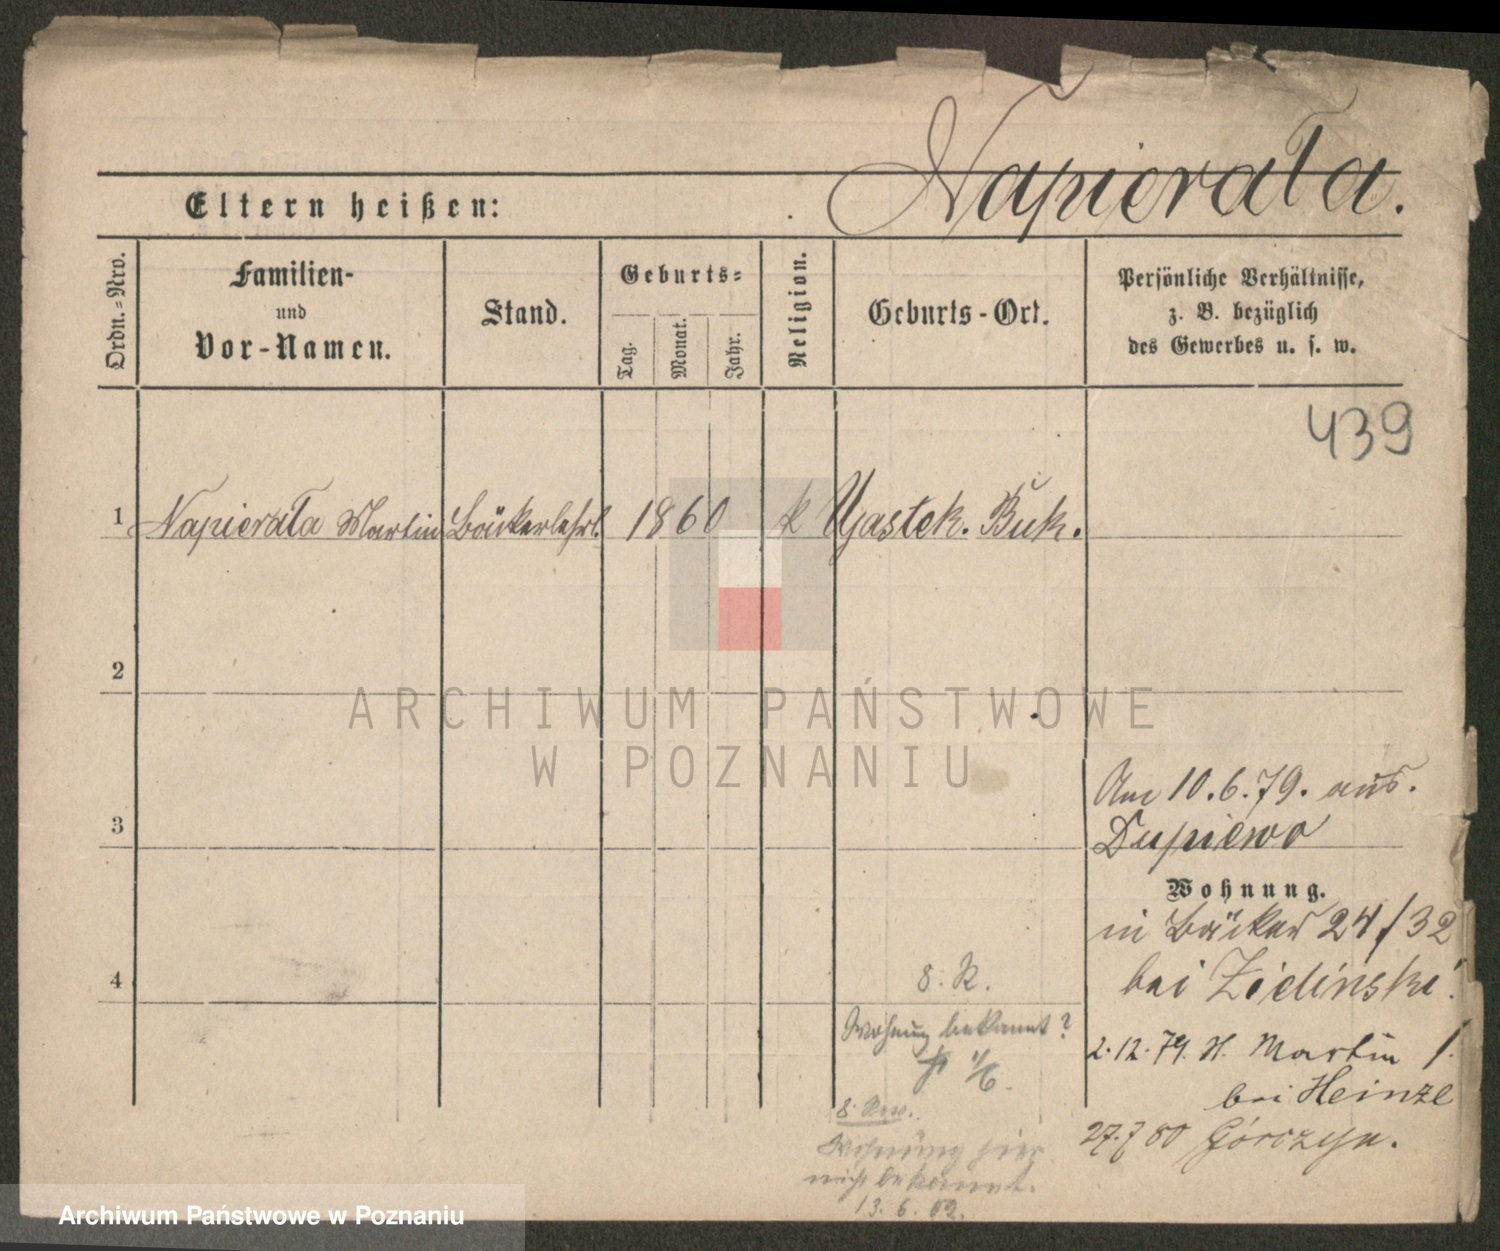 Napierała.
Eltern heißen:
Ordn.-Nro.
Familien-
und
Vor-Namen.
Stand.
Geburts-
Tag.
Monat.
Jahr.
Religion.
Geburts-Ort.
Persönliche Verhältnisse,
z. B. bezüglich
des Gewerbes u. s. w.
439
1 Napierała Martin Bäckerlehrl. 1860 k Ujastek. Buk.
2
ARCHIWUM PAŃSTWOWE
W POZNANIU
Am 10.6.79. aus.
3
Dupiewo
Wohnung.
in Bäcker 24/32
4
8. R.
bei Zidinski.
Wohnung bekannt?
2.12.79. H. Martin 1.
bei Heinze
8. Rev.
27.7 80 Górczyn.
Wohnung hier
nicht bekannt.
13. 6. 82.
Archiwum Państwowe w Poznaniu